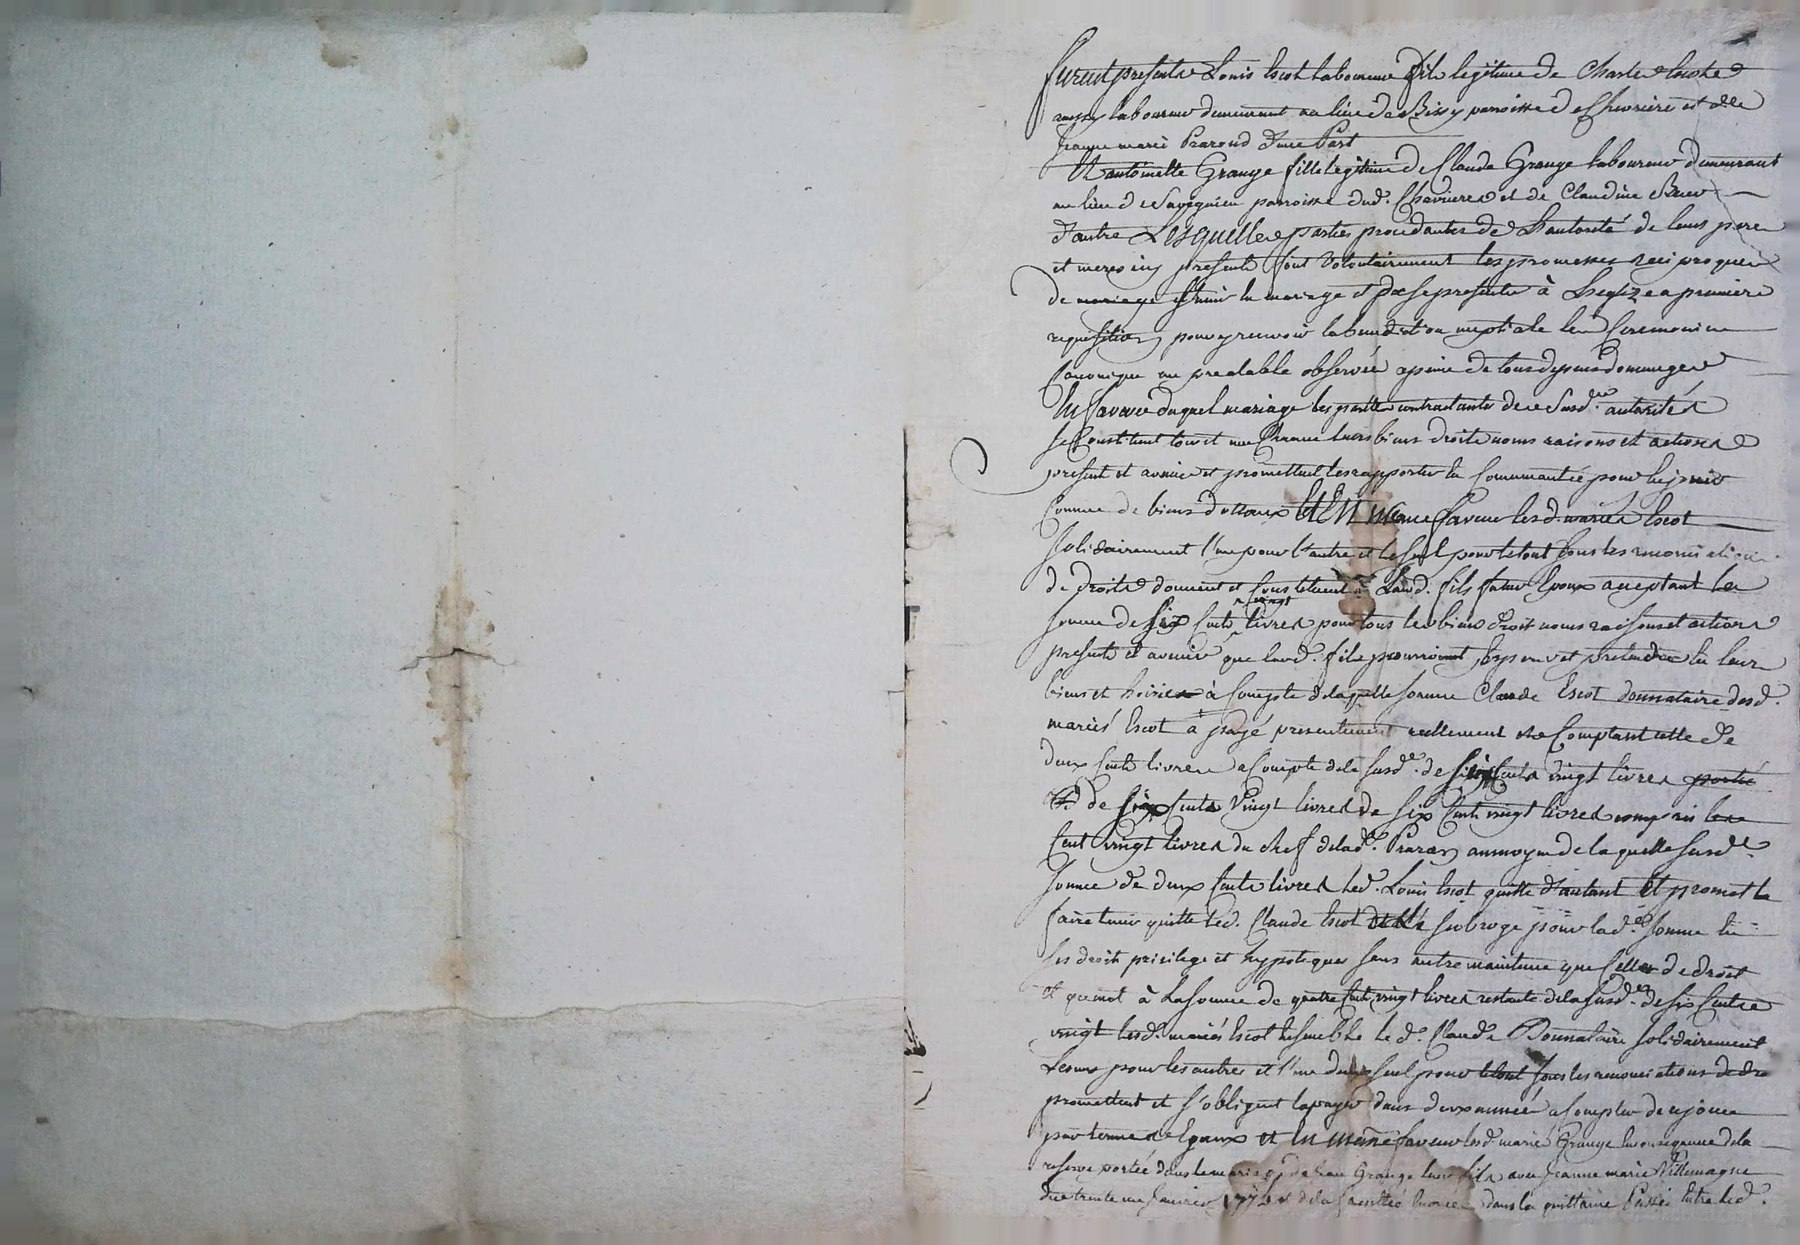 furent presents Louis Escot laboureur fils legitime de Charles Escot
laboureur demeurant au lieu de Bissy parroisse de Chevrieres et de
Jeanne marie Prarond d'une Part
Et antoinette Grange fille legitime de Claude Grange laboureur demeurant
au lieu de parroisse dud. Chavrieres et de Claudine
d'autre Lesquelles parties procedantes de L'autorité de leurs pere
et meres icy presents font volontairement les promesses reciproques
de mariage s'unir en mariage et de se presenter à L'eglize a premiere
requisition pour y recevoir la benediction nuptiale les Ceremonies
Canonique au prealable observée a peine de tous depens dommages
En faveur duquel mariage les parties contractantes de susd. autorités
se Constituent tous et un Chacun leurs biens droits noms raisons et actions
present et avenir et promettent les rapporter en Communauté pour les jouir
Comme de biens dottaux Et EN meme faveur lesd. mariés Escot
solidairement l'un pour l'autre et le seul pour le tout sous les renonciations
de droits donnent et constituent a Laud. fils futur Epoux acceptant la
vingt
somme de six Cents livres pour tous les biens droit noms raisons et actions
presents et avenir que laud. fils pourroient esperer et pretendre en leurs
biens et hoiries à Compte de laquelle somme Claude Escot donnataire desd.
mariés Escot à payé presentement reellement et Comptant celle de
deux Cents livres a Compte de la susd. de six Cents vingt livres portée
de six Cents Vingt livres de six Cents vingt livres compris les
Cent vingt livres du chef de lad. Prarond au moyen de laquelle susd.
somme de deux Cents livres led. Louis Escot quitte d'autant Et promet le
faire tenir quitte led. Claude Escot subroge pour lad. somme en
ses droits privilege et hypoteques sans autre maintenue que Celle de droit
et quand à La somme de quatre Cents vingt livres restante de la susd. de six Cents
vingt lesd. mariés Escot Ensemble le d. Claude Donnataire solidairement
Les uns pour les autres et l'un d'eux seul pour le tout sous les renonciations de dro
promettent et s'obligent la payer dans deux année a Compter de ce jour
par termes Egaux et En meme faveur lesd. mariés Grange En consequence de la
reserve portée dans le mariage de Jean Grange leur fils avec Jeanne marie Villemagne
du trente un Janvier et de la dans la quittance Passée entre led.